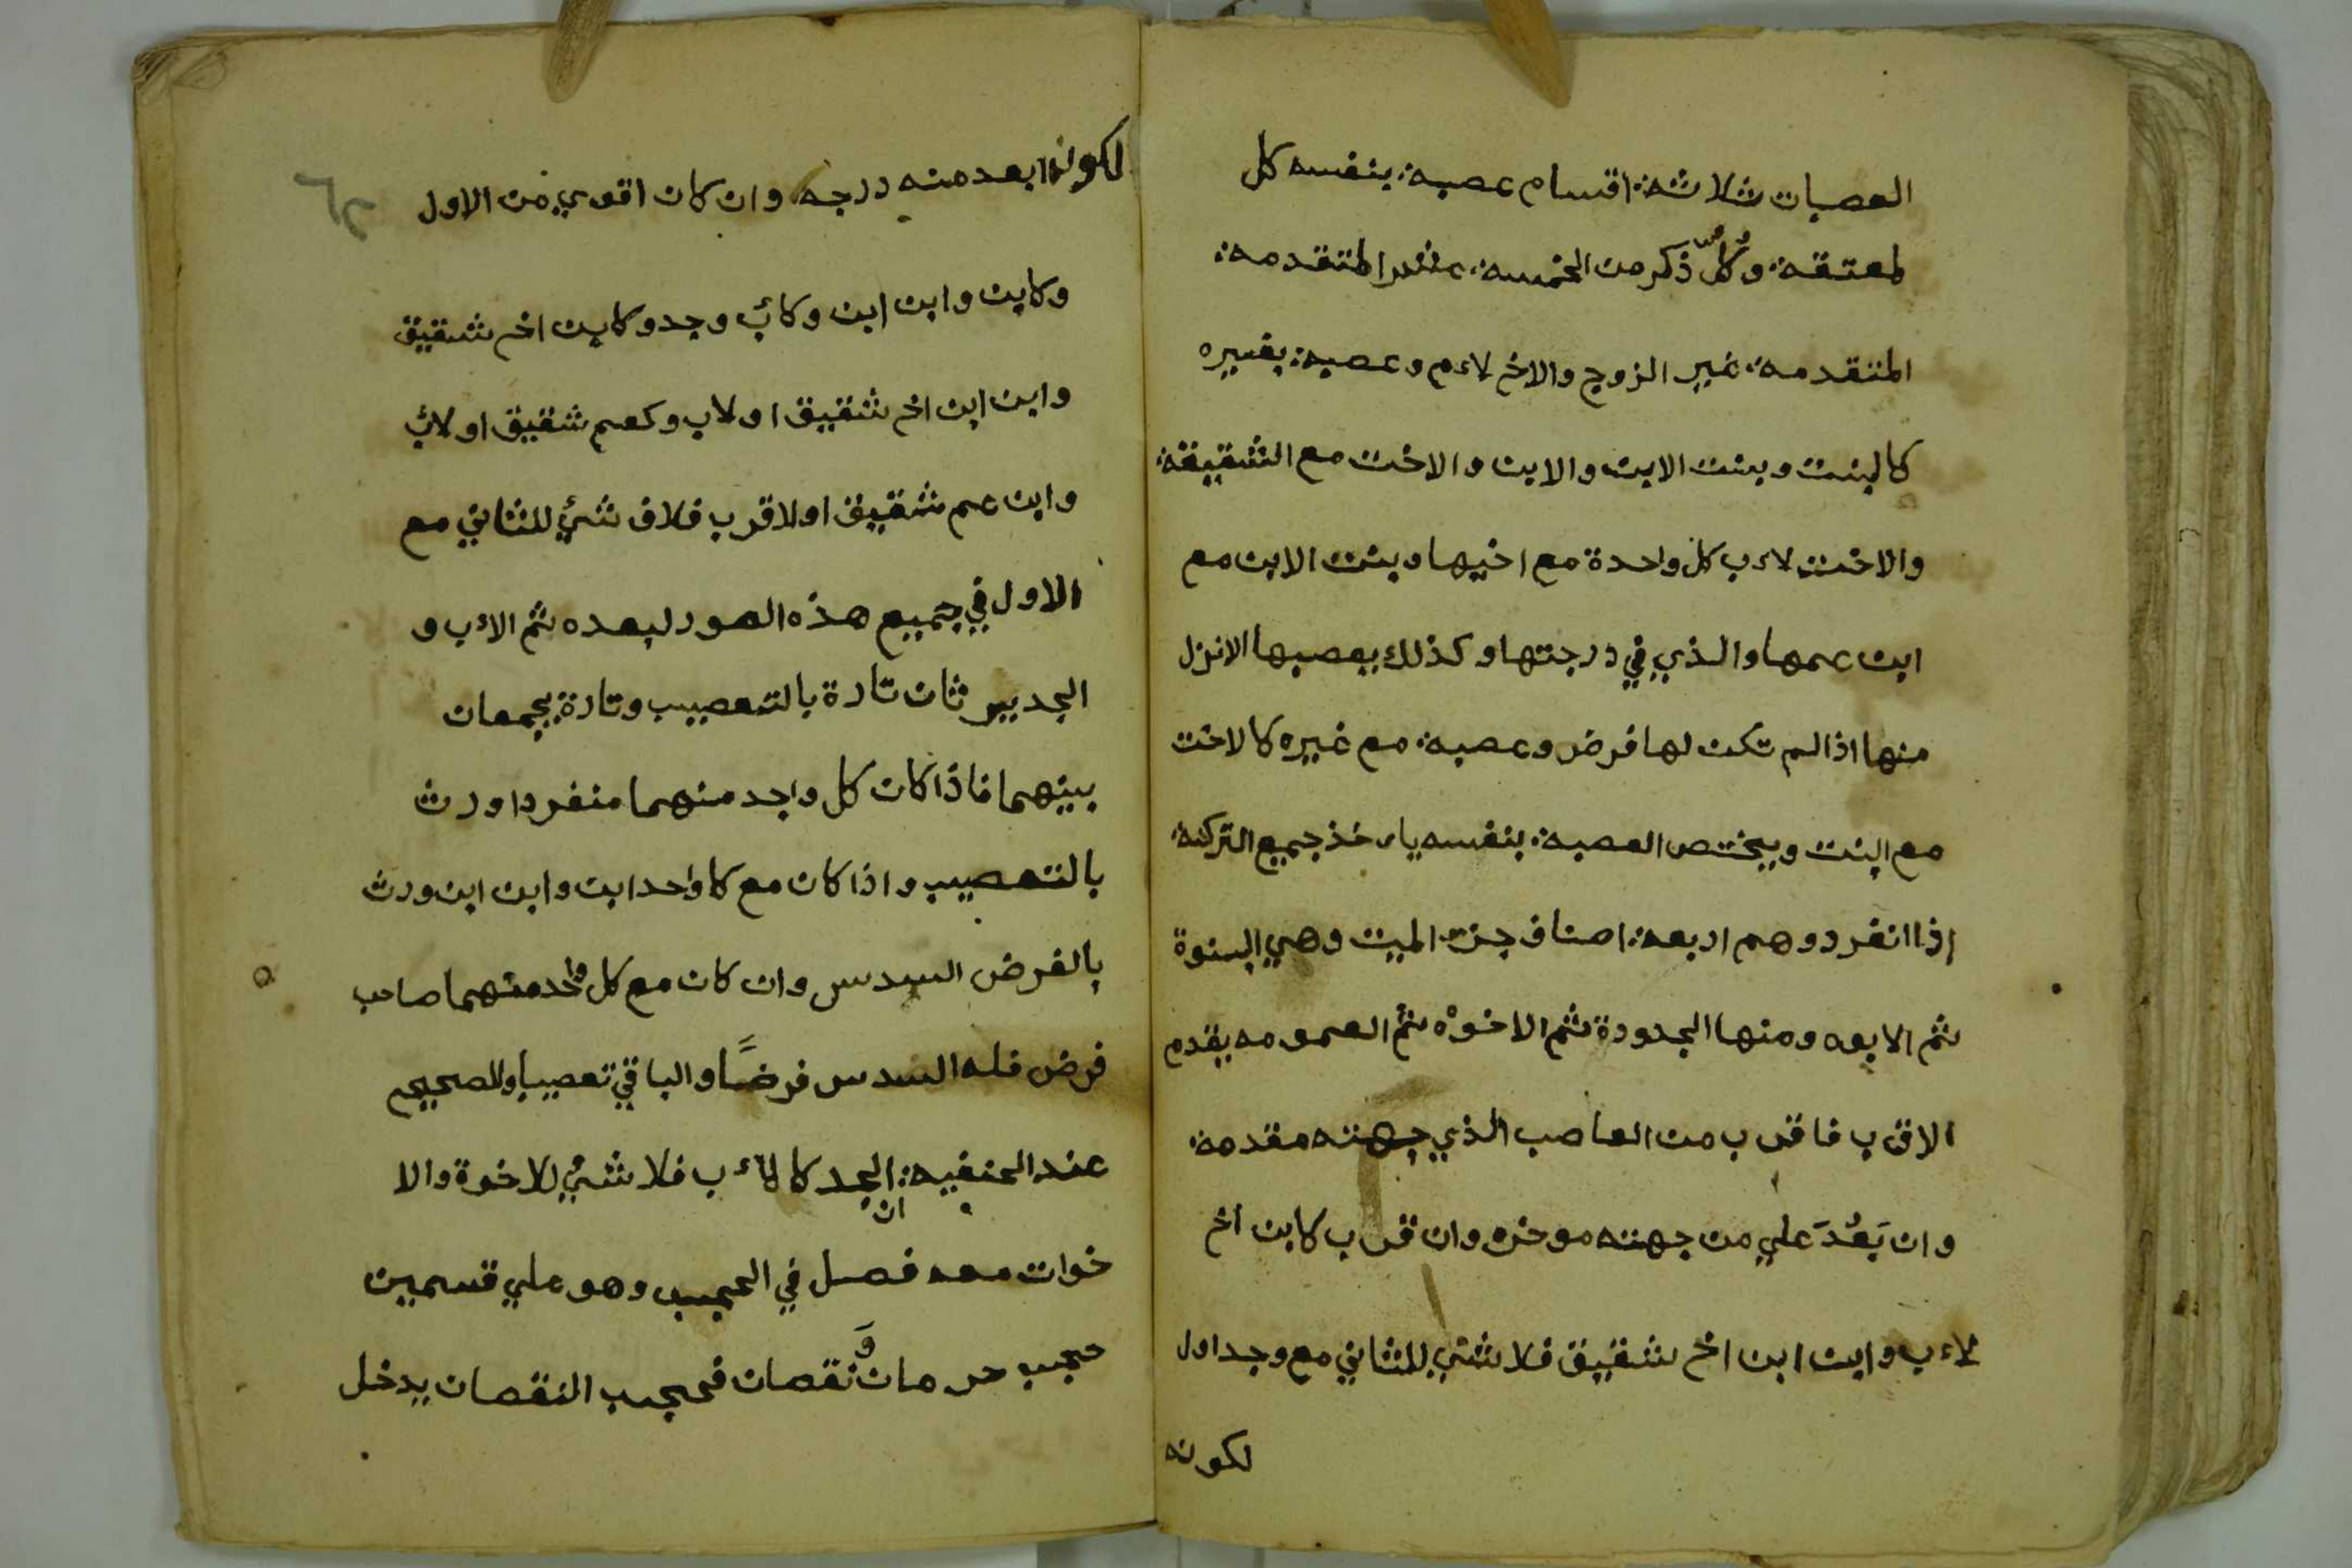 العصبات ثلاثة اقسام عصبة بنفسه كل
لمعتقة وكلّ ذكر من الخمسة عشر المتقدمة
المتقدمة غير الزوج والاخ لاءم وعصبة بغيره
كالبنت وبنت الابن والابن والاخت مع الشقيقة
والاخت لاءب كل واحدة مع اخيها وبنت الابن مع
ابن عمها والذي في درجتها وكذلك يعصبها الانزل
منها اذا لم تكن لها فرض وعصبة مع غيره كالاخت
مع البنت ويختص العصبة بنفسه ياءخذ جميع التركة
إذا انفرد وهم اربعة اصناف جزء الميت وهي البنوة
ثم الابوه ومنها الجدودة ثم الاخوه ثم العمومه يقدم
الاقرب فاقرب من العاصب الذي جهته مقدمة
وان بَعُدَ علي من جهته موخره وان قرب كابن اخ
لاءب وابن ابن اخ شقيق فلا شئ للثاني مع وجد اول
لكونه
لكونه ابعد منه درجه وان كان اقوي من الاول
وكابن وابن ابن وكأب وجد وكابن اخ شقيق
وابن ابن اخ شقيق اولاب وكعم شقيق او لأب
وابن عم شقيق اولاقرب فلاف شئ للثاني مع
الاول في جميع هذه الصور لبعده ثم الاءب و
الجد يرثان تارة بالتعصيب وتارة يجمعان
بينهما فاذا كان كل واحد منهما منفردا ورث
بالتعصيب واذا كان مع كا واحد ابن وابن ابن ورث
بالفرض السدس وان كان مع كل واحد منهما صاحب
فرض فله السدس فرضًا والباقي تعصيبا والصحيح
عند الحنفية ان الجد كالاءب فلا شئ للاخوة والا
خوات معه فصل في الحجب وهو علي قسمين
حجب حرمان وَنقصان فحجب النقصان يدخل